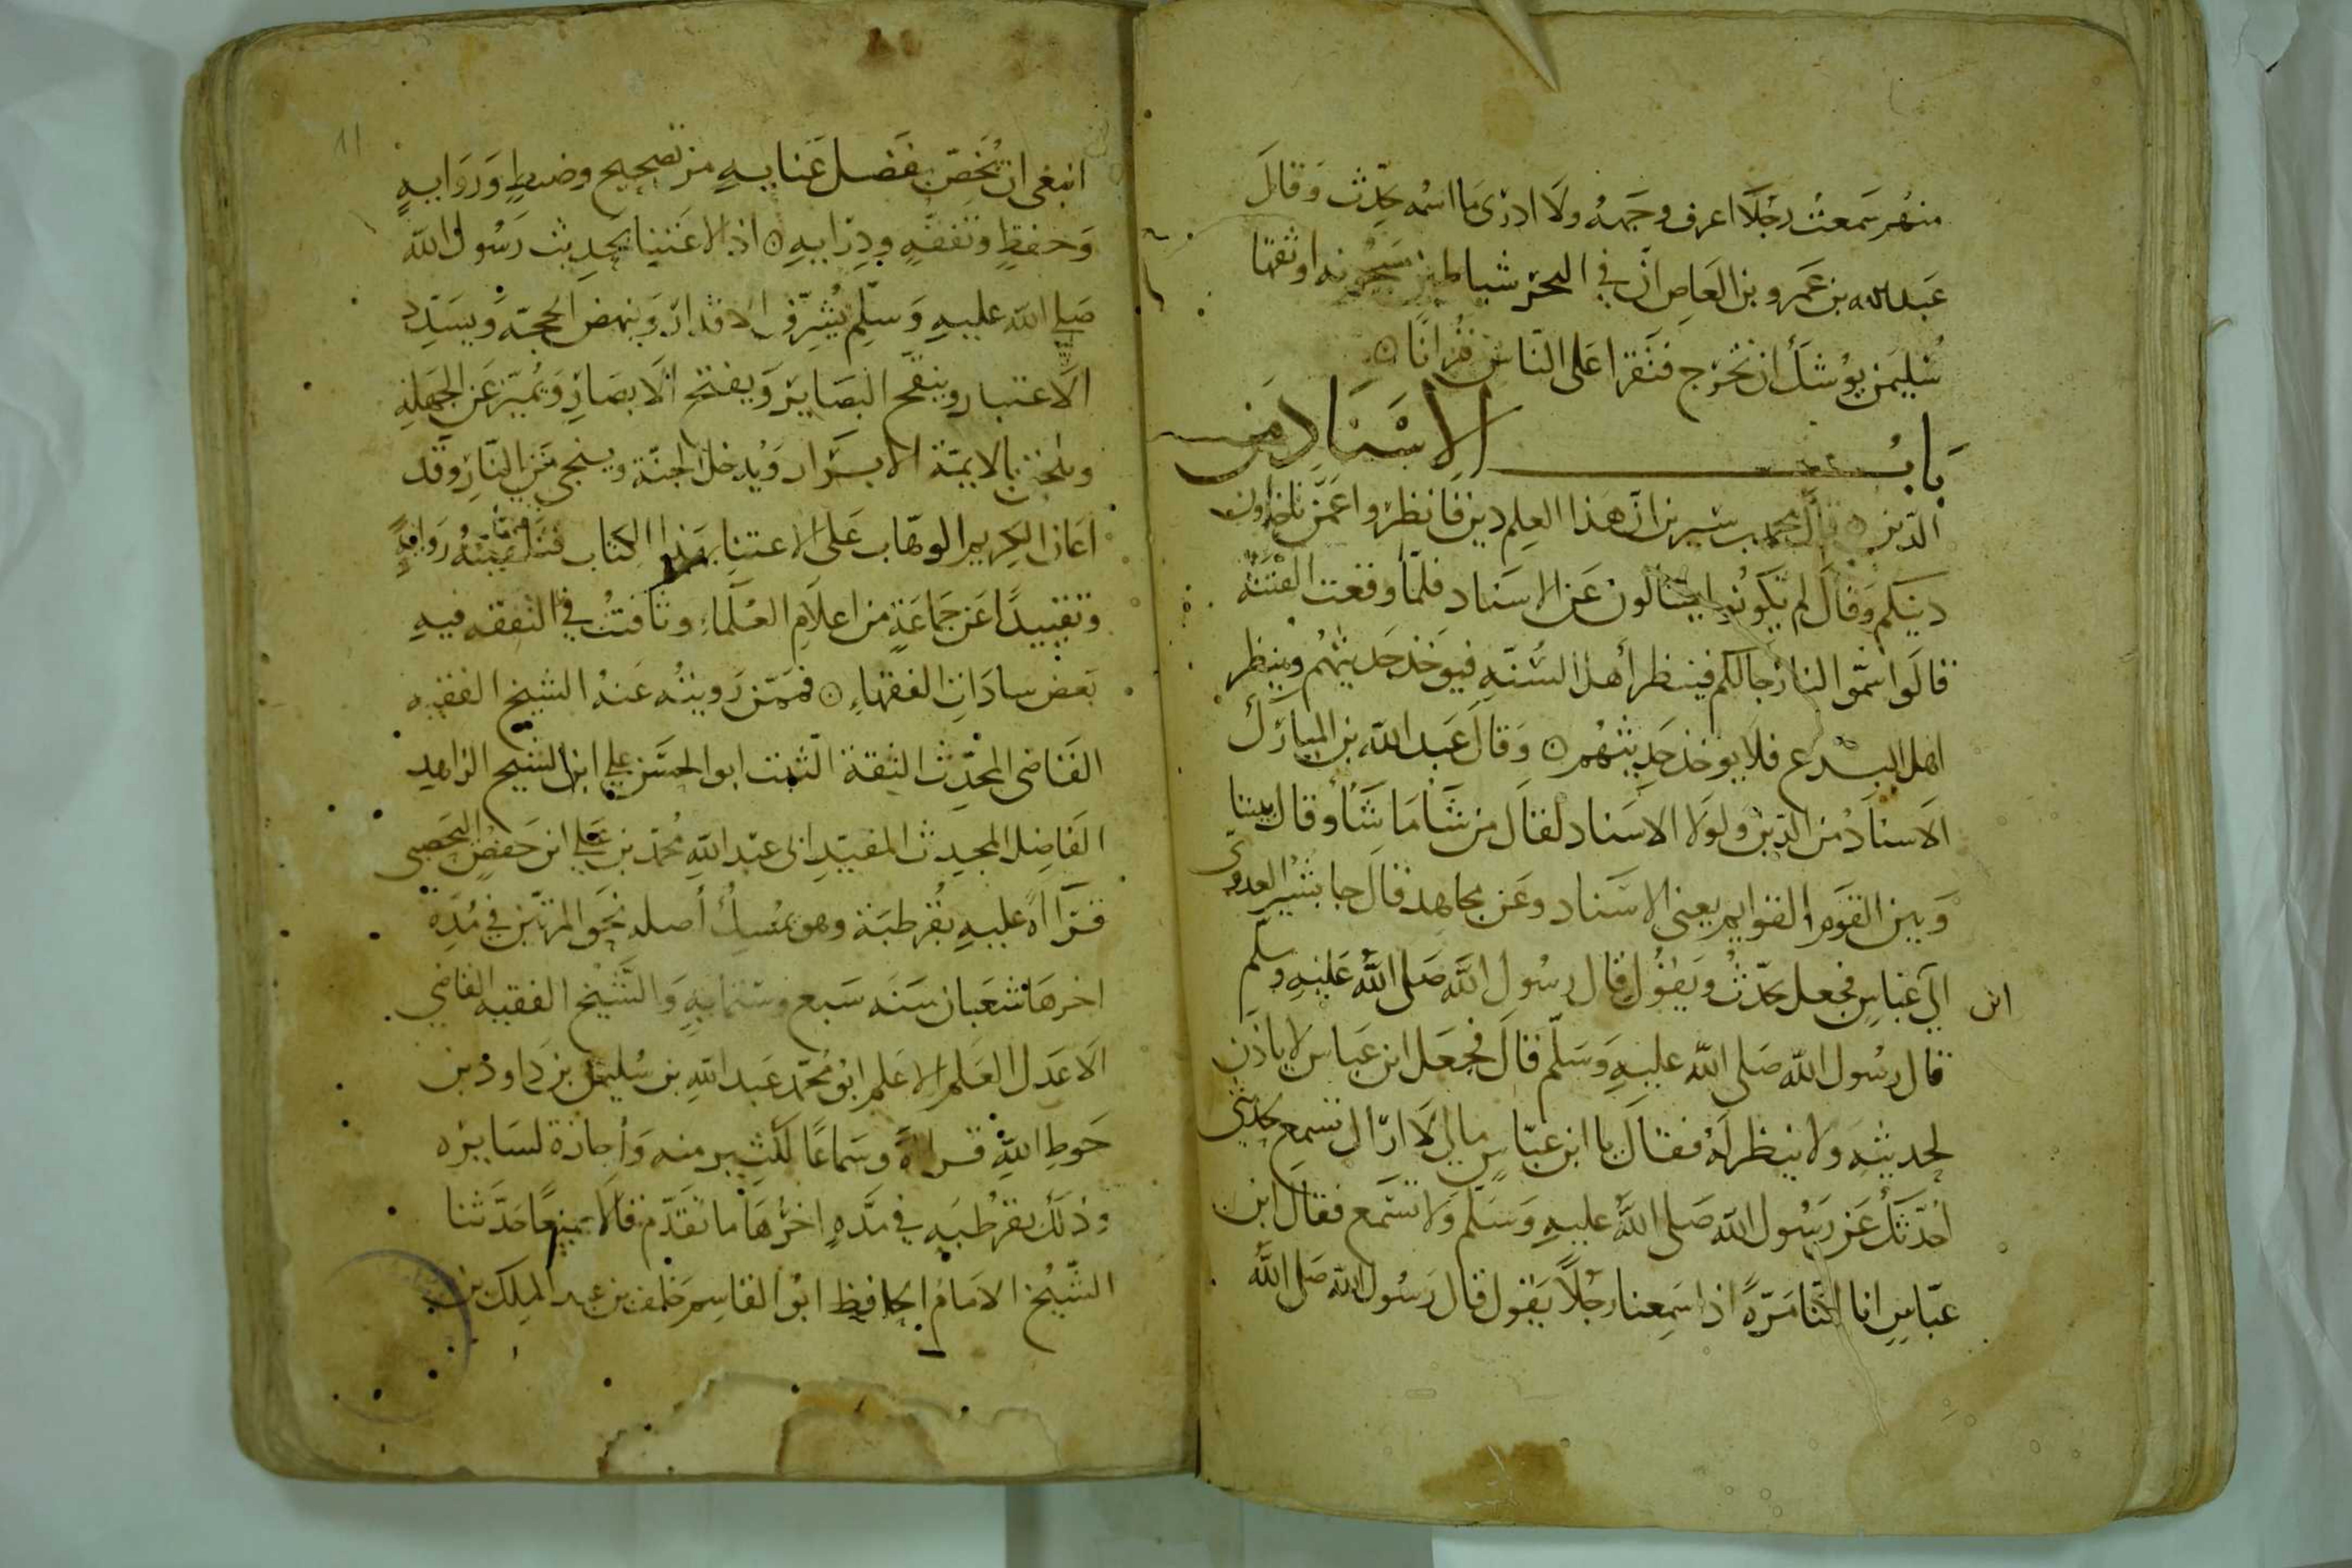 منهم سمعت رجلا اعرف وجهه ولا ادرى ما اسمه يحدث وقال
عبد الله بن عمرو بن العاص ان في البحر شياطين مسجونه اوثقها
سليمن يوشك ان تخرج فتقرا على الناس قرانا
باب الاسناد من
الدين قال محمد بن سيرين ان هذا العلم دين فانظروا عمن تاخذون
دينكم وقال لم يكونوا يسالون عن الاسناد فلما وقعت الفتنة
قالوا سموا لنا رجالكم فينظر أهل السنة فيوخذ حديثهم وينظر
اهل البدع فلا يوخذ حديثهم وقال عبد الله بن المبارك
الاسناد من الدين ولولا الاسناد لقال من شا ما شا وقال بيننا
وبين القوم القوايم يعنى الاسناد وعن مجاهد قال جا بشير العدوى
الى عباس فجعل يحدث ويقول قال رسول الله صلى الله عليه وسلم
ابن
قال رسول الله صلى الله عليه وسلم قال فجعل ابن عباس لا ياذن
لحديثه ولا ينظر له فقال يا ابن عباس مالي لا اراك تسمع لحديثي
أحدثك عن رسول الله صلى الله عليه وسلم ولا تسمع فقال ابن
عباس انا كنا مرة اذا سمعنا رجلا يقول قال رسول الله صلى الله
11
انبغى ان نخص بفضل عنايه من تصحيح وضبط وروايه
وحفظ وتفقه ودرايه اذ الاعتنا بحديث رسول الله
صلى الله عليه وسلم يشرف الاقدار وينهض الحجة ويسدد
الاعتبار وينقح البصاير ويفتح الابصار ويميز عن الجهله
ويلحق بالايمة الابرار ويدخل الجنة وينجي من النار وقد
اعان الكريم الوهاب على الاعتنا بهذا الكتاب فتلقيته رواية
وتقييدا عن جماعة من اعلام العلماء وثافنت في التفقه فيه
بعض سادات الفقهاء فممن رويته عنه الشيخ الفقيه
القاضى المحدث الثقة الثبت ابو الحسن علي ابن الشيخ الزاهد
الفاضل المحدث المقيد ابى عبد الله محمد بن علي ابن حفص اليحصبى
قراأة عليه بقرطبة وهو يمسك أصله نحو المرتين في مدة
اخرها شعبان سنه سبع وستمايه والشيخ الفقيه القاضي
الاعدل العلم الاعلم ابو محمد عبد الله بن سليمن بن داود بن
حوط الله قراة وسماعا لكثير منه وأجازة لسايره
وذلك بقرطبه في مده اخرها ما تقدم قالا جميعا حدثنا
الشيخ الامام الحافظ ابو القاسم خلف بن عبد الملك بن